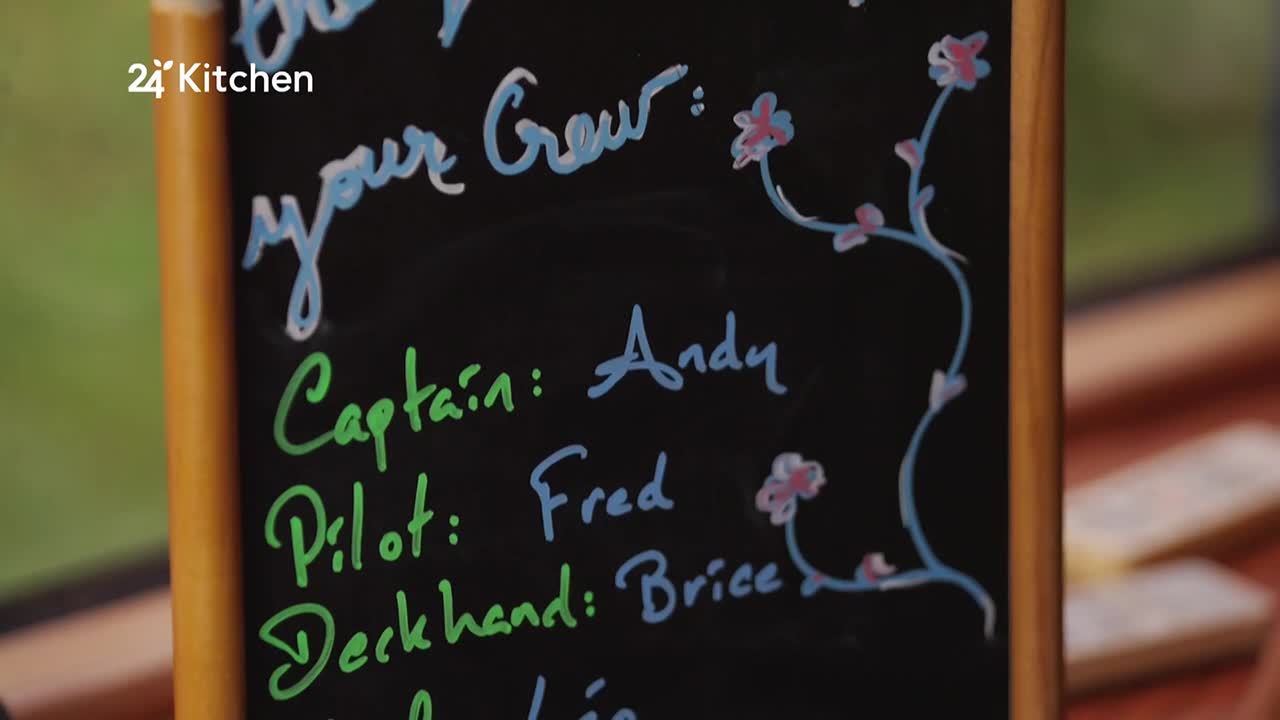 24 Kitchen
your Crew:
Captain: Andy
Pilot: Fred
Deckhand: Brice